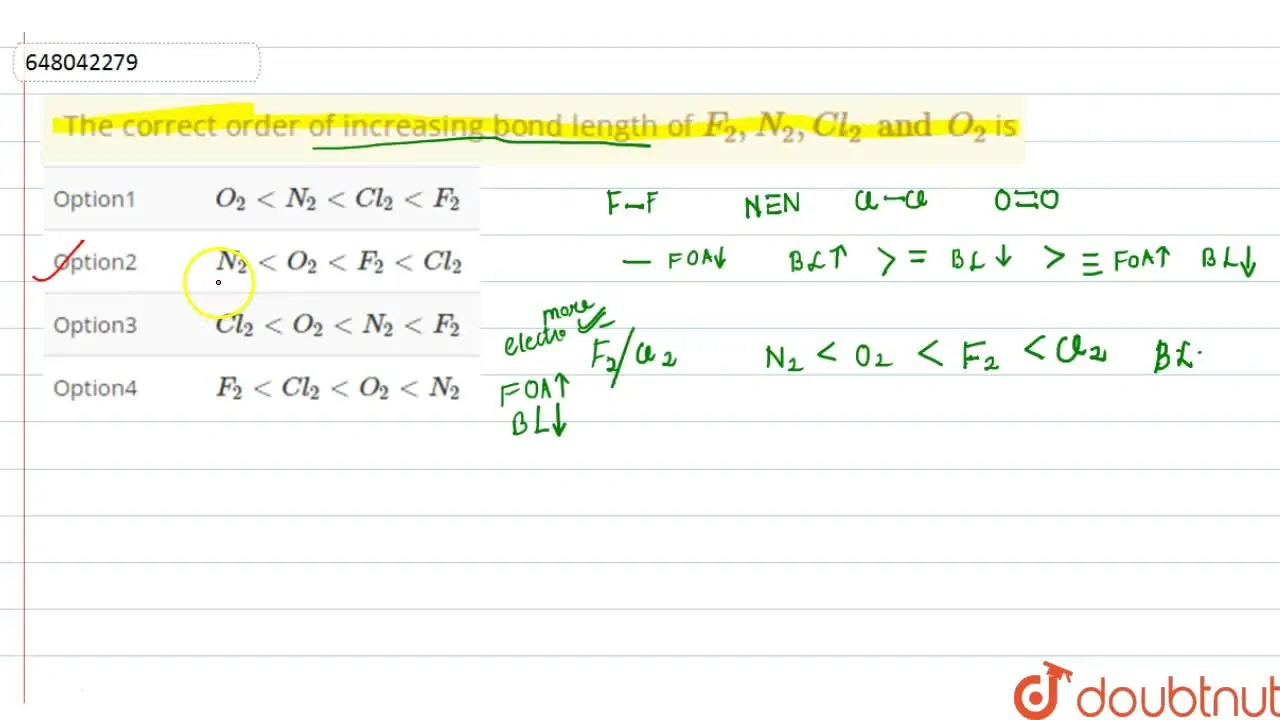 648042279
The correct order of increasing bond length of F₂, N₂, Cl₂ and O₂ is
Option1 O₂ < N₂ < Cl₂ < F₂
Option2 N₂ < O₂ < F₂ < Cl₂
Option3 Cl₂ < O₂ < N₂ < F₂
Option4 F₂ < Cl₂ < O₂ < N₂
F–F N≡N Cl–Cl O=O
— FOA↓ BL↑ > = BL↓ > ≡ FOA↑ BL↓
more
electro
F₂/Cl₂ N₂ < O₂ < F₂ < Cl₂ BL.
FOA↑
BL↓
doubtnut